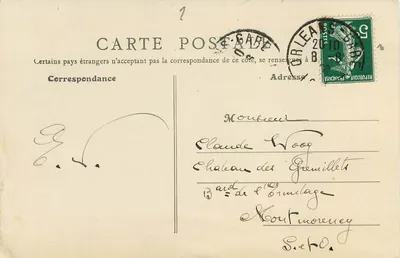 CARTE POSTALE
Certains pays étrangers n'acceptant pas la correspondance de ce côté, se renseigner à
Correspondance
Adresse
ORLEANS-GARE
20-10
GARE
5
Monsieur
Claude Woog
Chateau des Gremillets
Bard de l'Ermitage
Montmorency
S. et O.